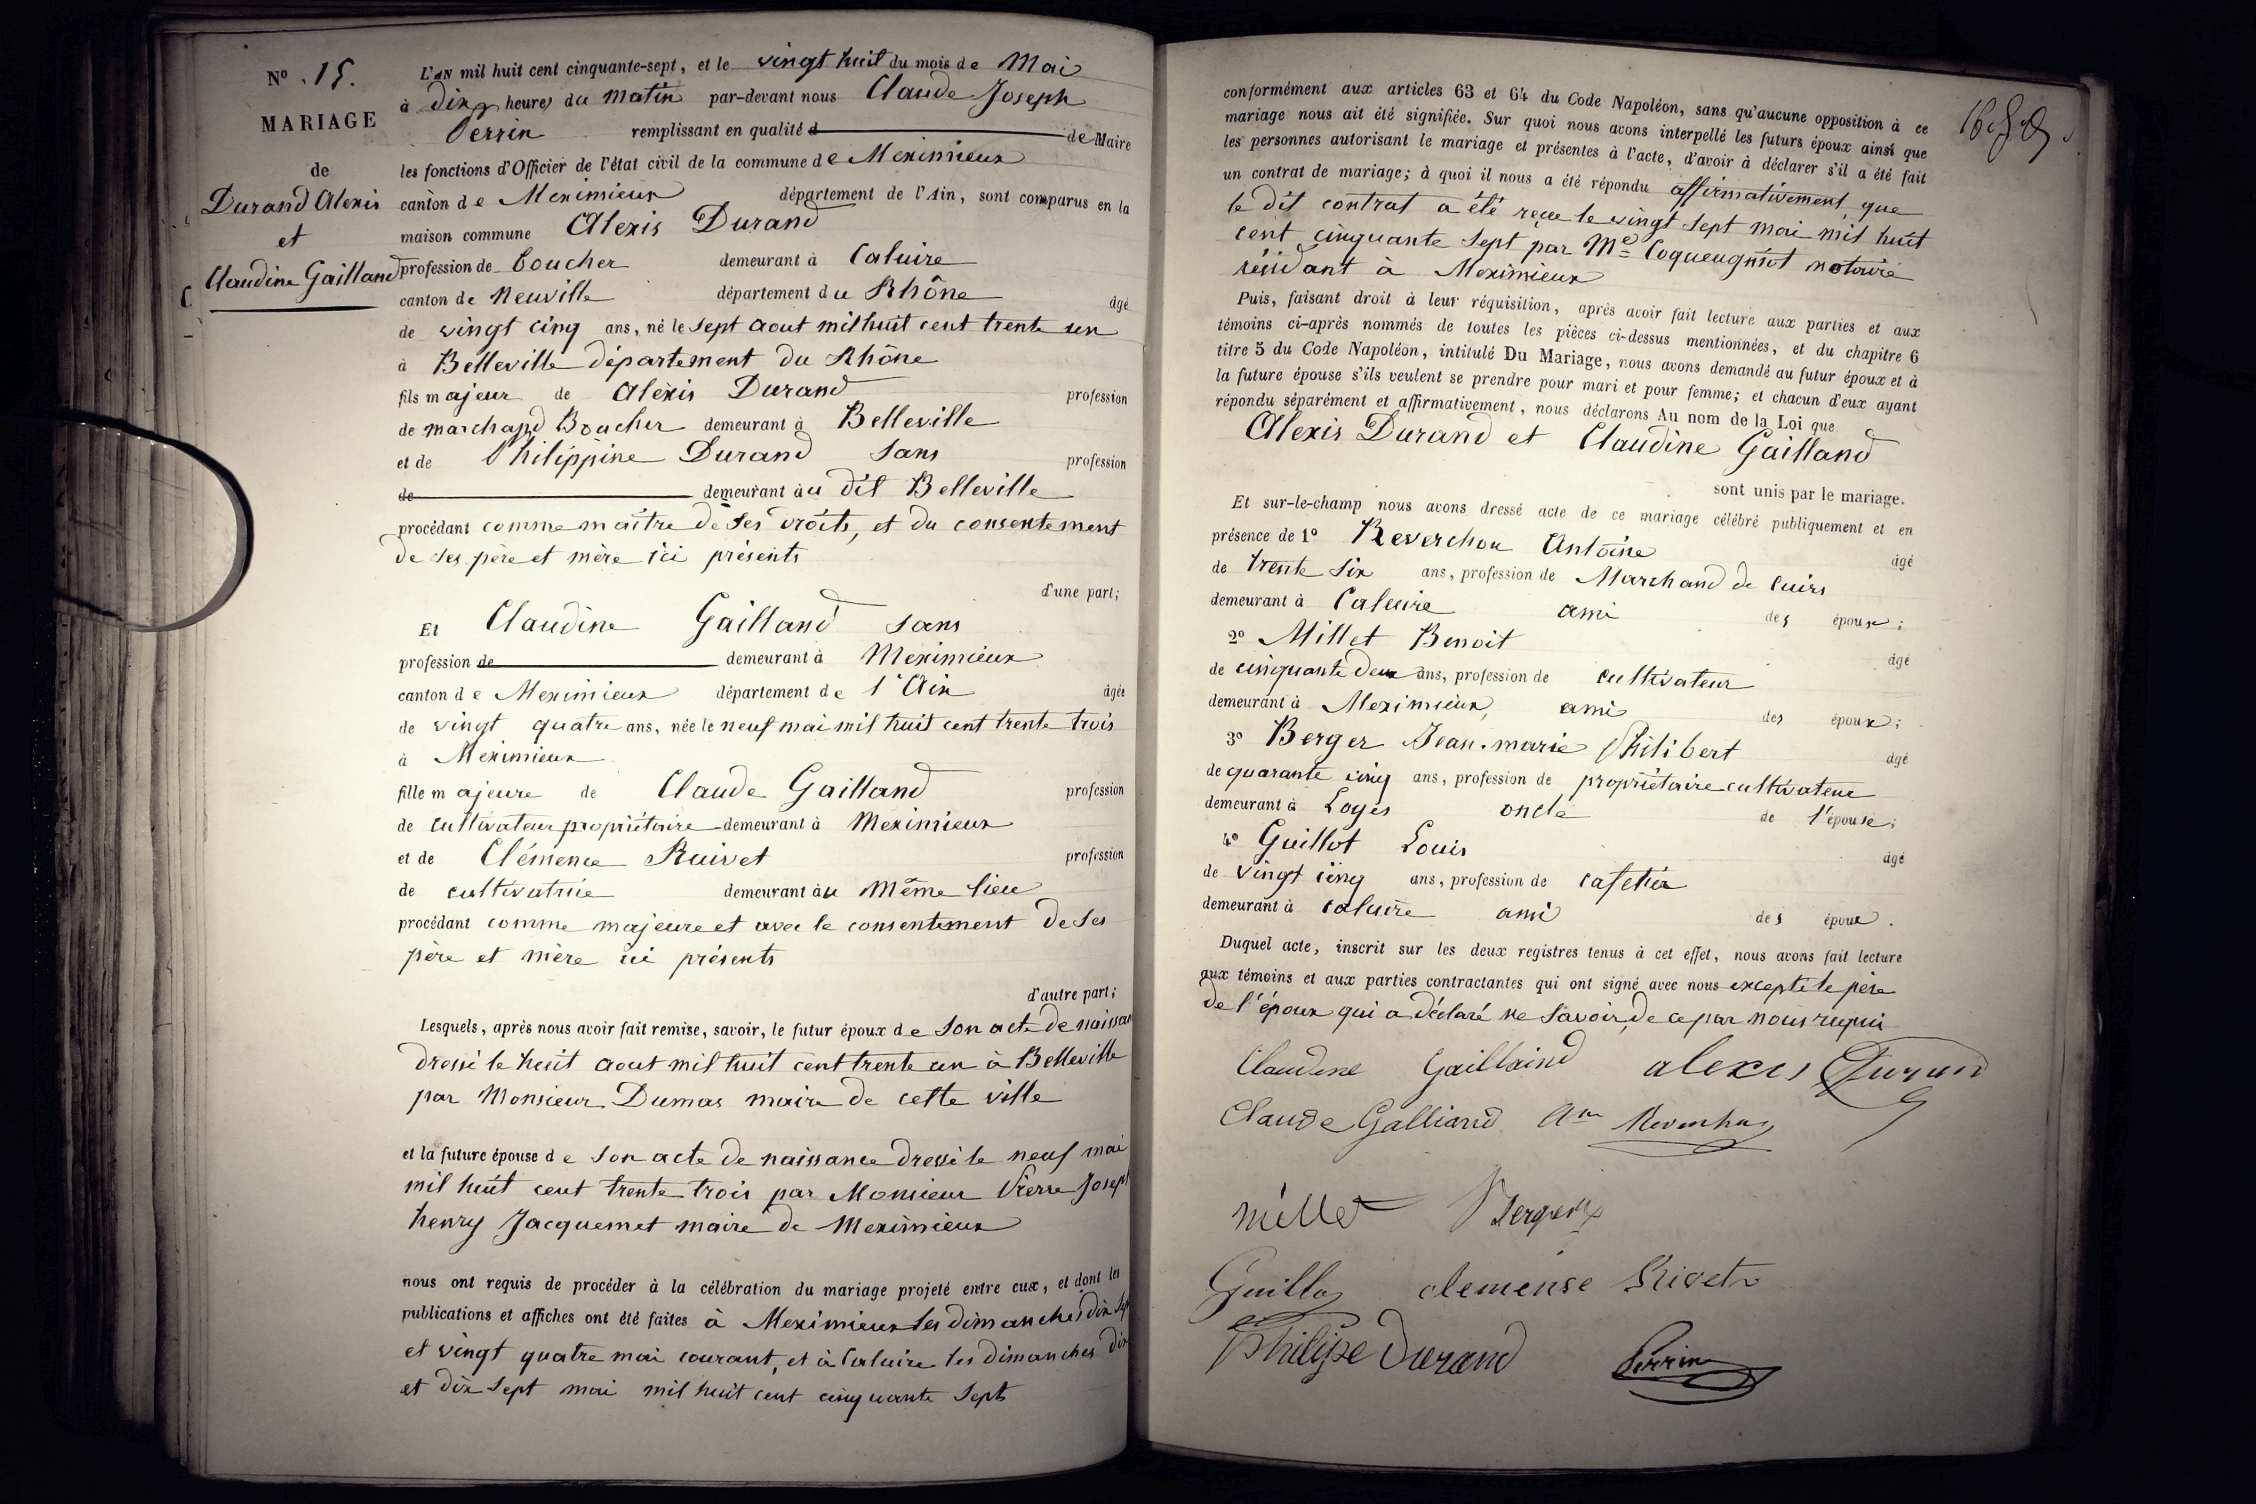 N.º 15.
MARIAGE
de
Durand Alexis
et
Claudine Gailland
L'AN mil huit cent cinquante-sept, et le vingt huit du mois de Mai
à dix heures du matin par-devant nous Claude Joseph
Perrin remplissant en qualité d de Maire
les fonctions d'Officier de l'état civil de la commune de Meximieux
canton de Meximieux département de l'Ain, sont comparus en la
maison commune Alexis Durand
profession de boucher demeurant à Caluire
canton de Neuville département du Rhône âgé
de vingt cinq ans, né le sept aout mil huit cent trente un
à Belleville département du Rhône
fils majeur de Alexis Durand profession
de marchand Boucher demeurant à Belleville
et de Philippine Durand sans profession
de demeurant au dit Belleville
procédant comme maître de ses droits, et du consentement
de ses père et mère ici présents
d'une part;
Et Claudine Gailland sans
profession de demeurant à Meximieux
canton de Meximieux département de l'Ain âgée
de vingt quatre ans, née le neuf mai mil huit cent trente trois
à Meximieux
fille majeure de Claude Gailland profession
de cultivateur propriétaire demeurant à Meximieux
et de Clémence Ruivet profession
de cultivatrice demeurant au même lieu
procédant comme majeure et avec le consentement de ses
père et mère ici présents
d'autre part;
Lesquels, après nous avoir fait remise, savoir, le futur époux de son acte de naissan
dressé le huit aout mil huit cent trente un à Belleville
par Monsieur Dumas maire de cette ville
et la future épouse de son acte de naissance dressé le neuf mai
mil huit cent trente trois par Monsieur Pierre Joseph
henry Jacquemet maire de Meximieux
nous ont requis de procéder à la célébration du mariage projeté entre eux, et dont les
publications et affiches ont été faites à Meximieux les dimanches dix sept
et vingt quatre mai courant, et à Caluire les dimanches dix
et dix sept mai mil huit cent cinquante sept
conformément aux articles 63 et 64 du Code Napoléon, sans qu'aucune opposition à ce
mariage nous ait été signifiée. Sur quoi nous avons interpellé les futurs époux ainsi que
les personnes autorisant le mariage et présentes à l'acte, d'avoir à déclarer s'il a été fait
un contrat de mariage; à quoi il nous a été répondu affirmativement, que
le dit contrat a été reçu le vingt sept mai mil huit
cent cinquante sept par Me Coqueugniot notaire
résidant à Meximieux
Puis, faisant droit à leur réquisition, après avoir fait lecture aux parties et aux
témoins ci-après nommés de toutes les pièces ci-dessus mentionnées, et du chapitre 6
titre 5 du Code Napoléon, intitulé Du Mariage, nous avons demandé au futur époux et à
la future épouse s'ils veulent se prendre pour mari et pour femme; et chacun d'eux ayant
répondu séparément et affirmativement, nous déclarons Au nom de la Loi que
Alexis Durand et Claudine Gailland
sont unis par le mariage.
Et sur-le-champ nous avons dressé acte de ce mariage célébré publiquement et en
présence de 1º Reverchon Antoine âgé
de trente six ans, profession de Marchand de cuirs
demeurant à Caluire ami des époux;
2º Millet Benoit âgé
de cinquante deux ans, profession de cultivateur
demeurant à Meximieux, ami des époux;
3º Berger Jean-marie Philibert âgé
de quarante cinq ans, profession de propriétaire cultivateur
demeurant à Loyes oncle de l'épouse;
4º Guillot Louis âgé
de vingt cinq ans, profession de cafetier
demeurant à caluire ami des époux.
Duquel acte, inscrit sur les deux registres tenus à cet effet, nous avons fait lecture
aux témoins et aux parties contractantes qui ont signé avec nous excepté le père
de l'époux qui a déclaré ne savoir, de ce par nous requis
Claudine Gailland alexis Durand
Claude Galliand
millet Berger
Guillot clemense Rivet
Philipe Durand Perrin